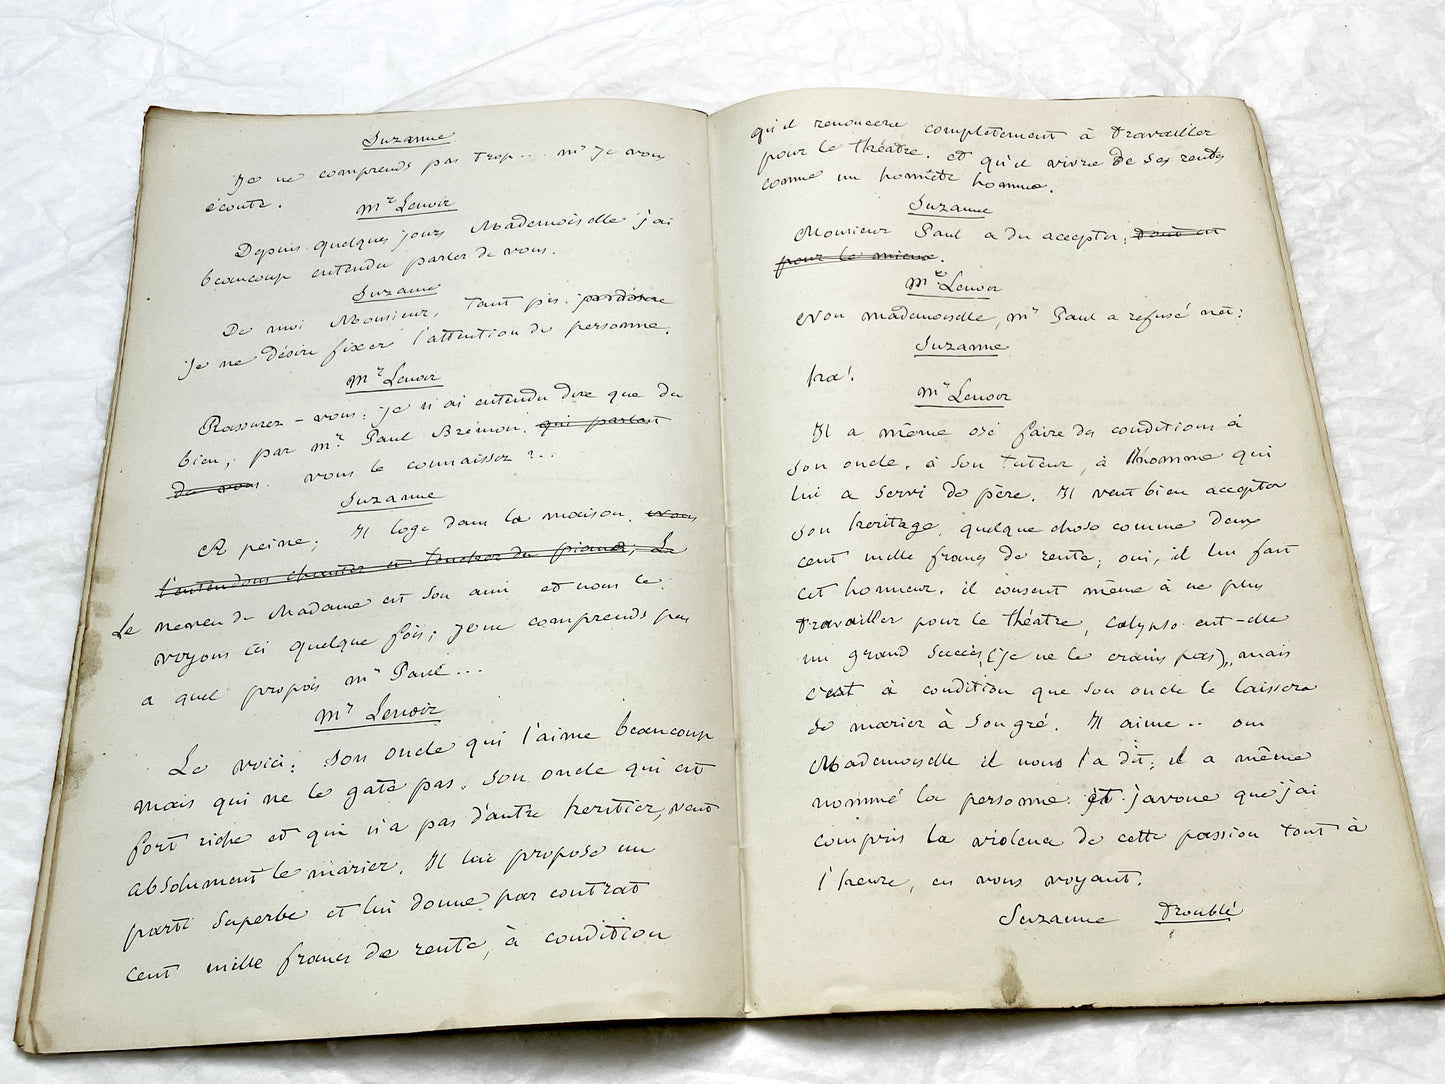 Suzanne
Je ne comprends pas trop... Mr Je vous
écoute.
Mr Lenoir
Depuis quelques jours Mademoiselle j'ai
beaucoup entendu parler de vous.
Suzanne
De moi Monsieur, tant pis.
Je ne désire fixer l'attention de personne.
Mr Lenoir
Rassurez-vous; je n'ai entendu dire que du
bien, par Mr Paul Brémon. qui parlait
de vous. vous le connaissez?..
Suzanne
A peine; Il loge dans la maison. nous
l'entendons chanter au piano; Le
Le neveu de Madame est son ami et nous le
voyons ici quelque fois; je ne comprends pas
a quel propos Mr Paul...
Mr Lenoir
Le voici: son oncle qui l'aime beaucoup
mais qui ne le gate pas. son oncle qui est
fort riche et qui n'a pas d'autre heritier, veut
absolument le marier. Il lui propose un
parti superbe et lui donne par contrat
cent mille francs de rente, à condition
qu'il renoncera complètement à travailler
pour le théatre. et qu'il vivra de ses rentes
comme un honnête homme.
Suzanne
Monsieur Paul a du accepter, tout est
pour le mieux.
Mr Lenoir
Non mademoiselle, Mr Paul a refusé net:
Suzanne
ha!
Mr Lenoir
Il a même osé faire des conditions à
son oncle. à son tuteur, à l'homme qui
lui a servi de père. Il veut bien accepter
son heritage, quelque chose comme deux
cent mille francs de rente; oui, il lui fait
cet honneur. il consent même à ne plus
travailler pour le théatre, calypso eut-elle
un grand succès, (je ne le crains pas), mais
c'est à condition que son oncle le laissera
se marier à son gré. Il aime.. oui
Mademoiselle il nous l'a dit; il a même
nommé la personne. et j'avoue que j'ai
compris la violence de cette passion tout à
l'heure, en vous voyant.
Suzanne troublé